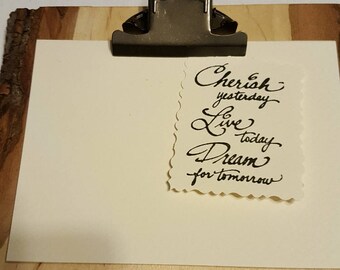 Cherish
yesterday
Live
today
Dream
for tomorrow